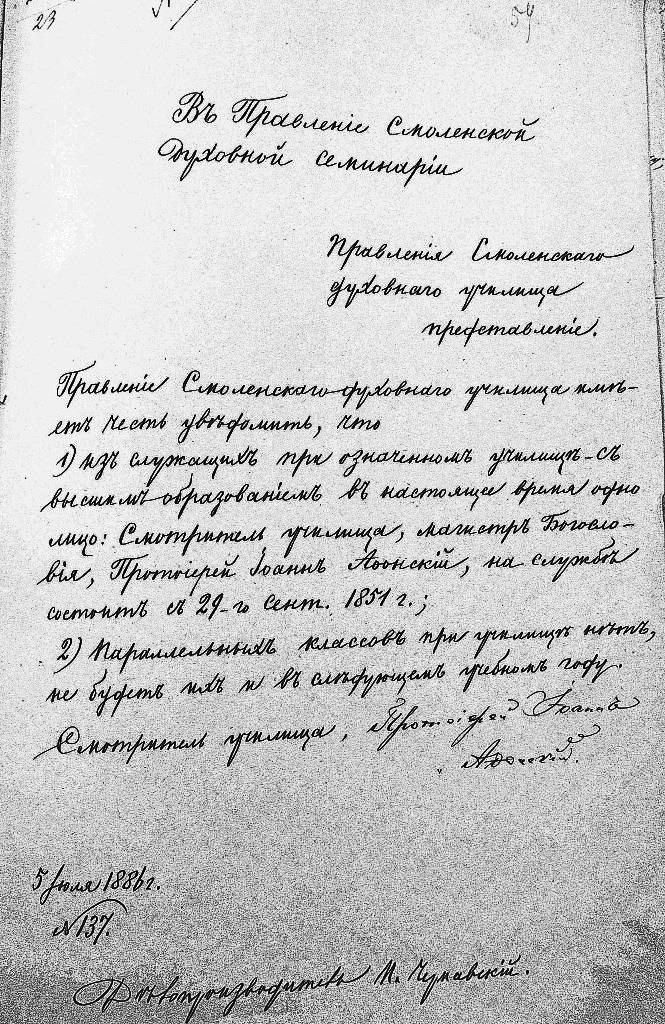 23
54
Въ Правленіе Смоленской
Духовной семинаріи
Правленія Смоленскаго
духовнаго училища
представленіе.
Правленіе Смоленскаго духовнаго училища имѣ-
етъ честь увѣдомить, что
1) изъ служащихъ при означенномъ училищѣ съ
высшимъ образованіемъ въ настоящее время одно
лицо: Смотритель училища, магистръ Богосло-
вія, Протоіерей Іоаннъ Адонскій, на службѣ
состоитъ съ 29-го Сент. 1851 г.;
2) Параллельныхъ классовъ при училищѣ нѣтъ,
не будетъ ихъ и въ слѣдующемъ учебномъ году.
Смотритель училища, Протоіерей Іоаннъ
Адонскій.
5 Іюля 1886 г.
№ 137.
Дѣлопроизводитель